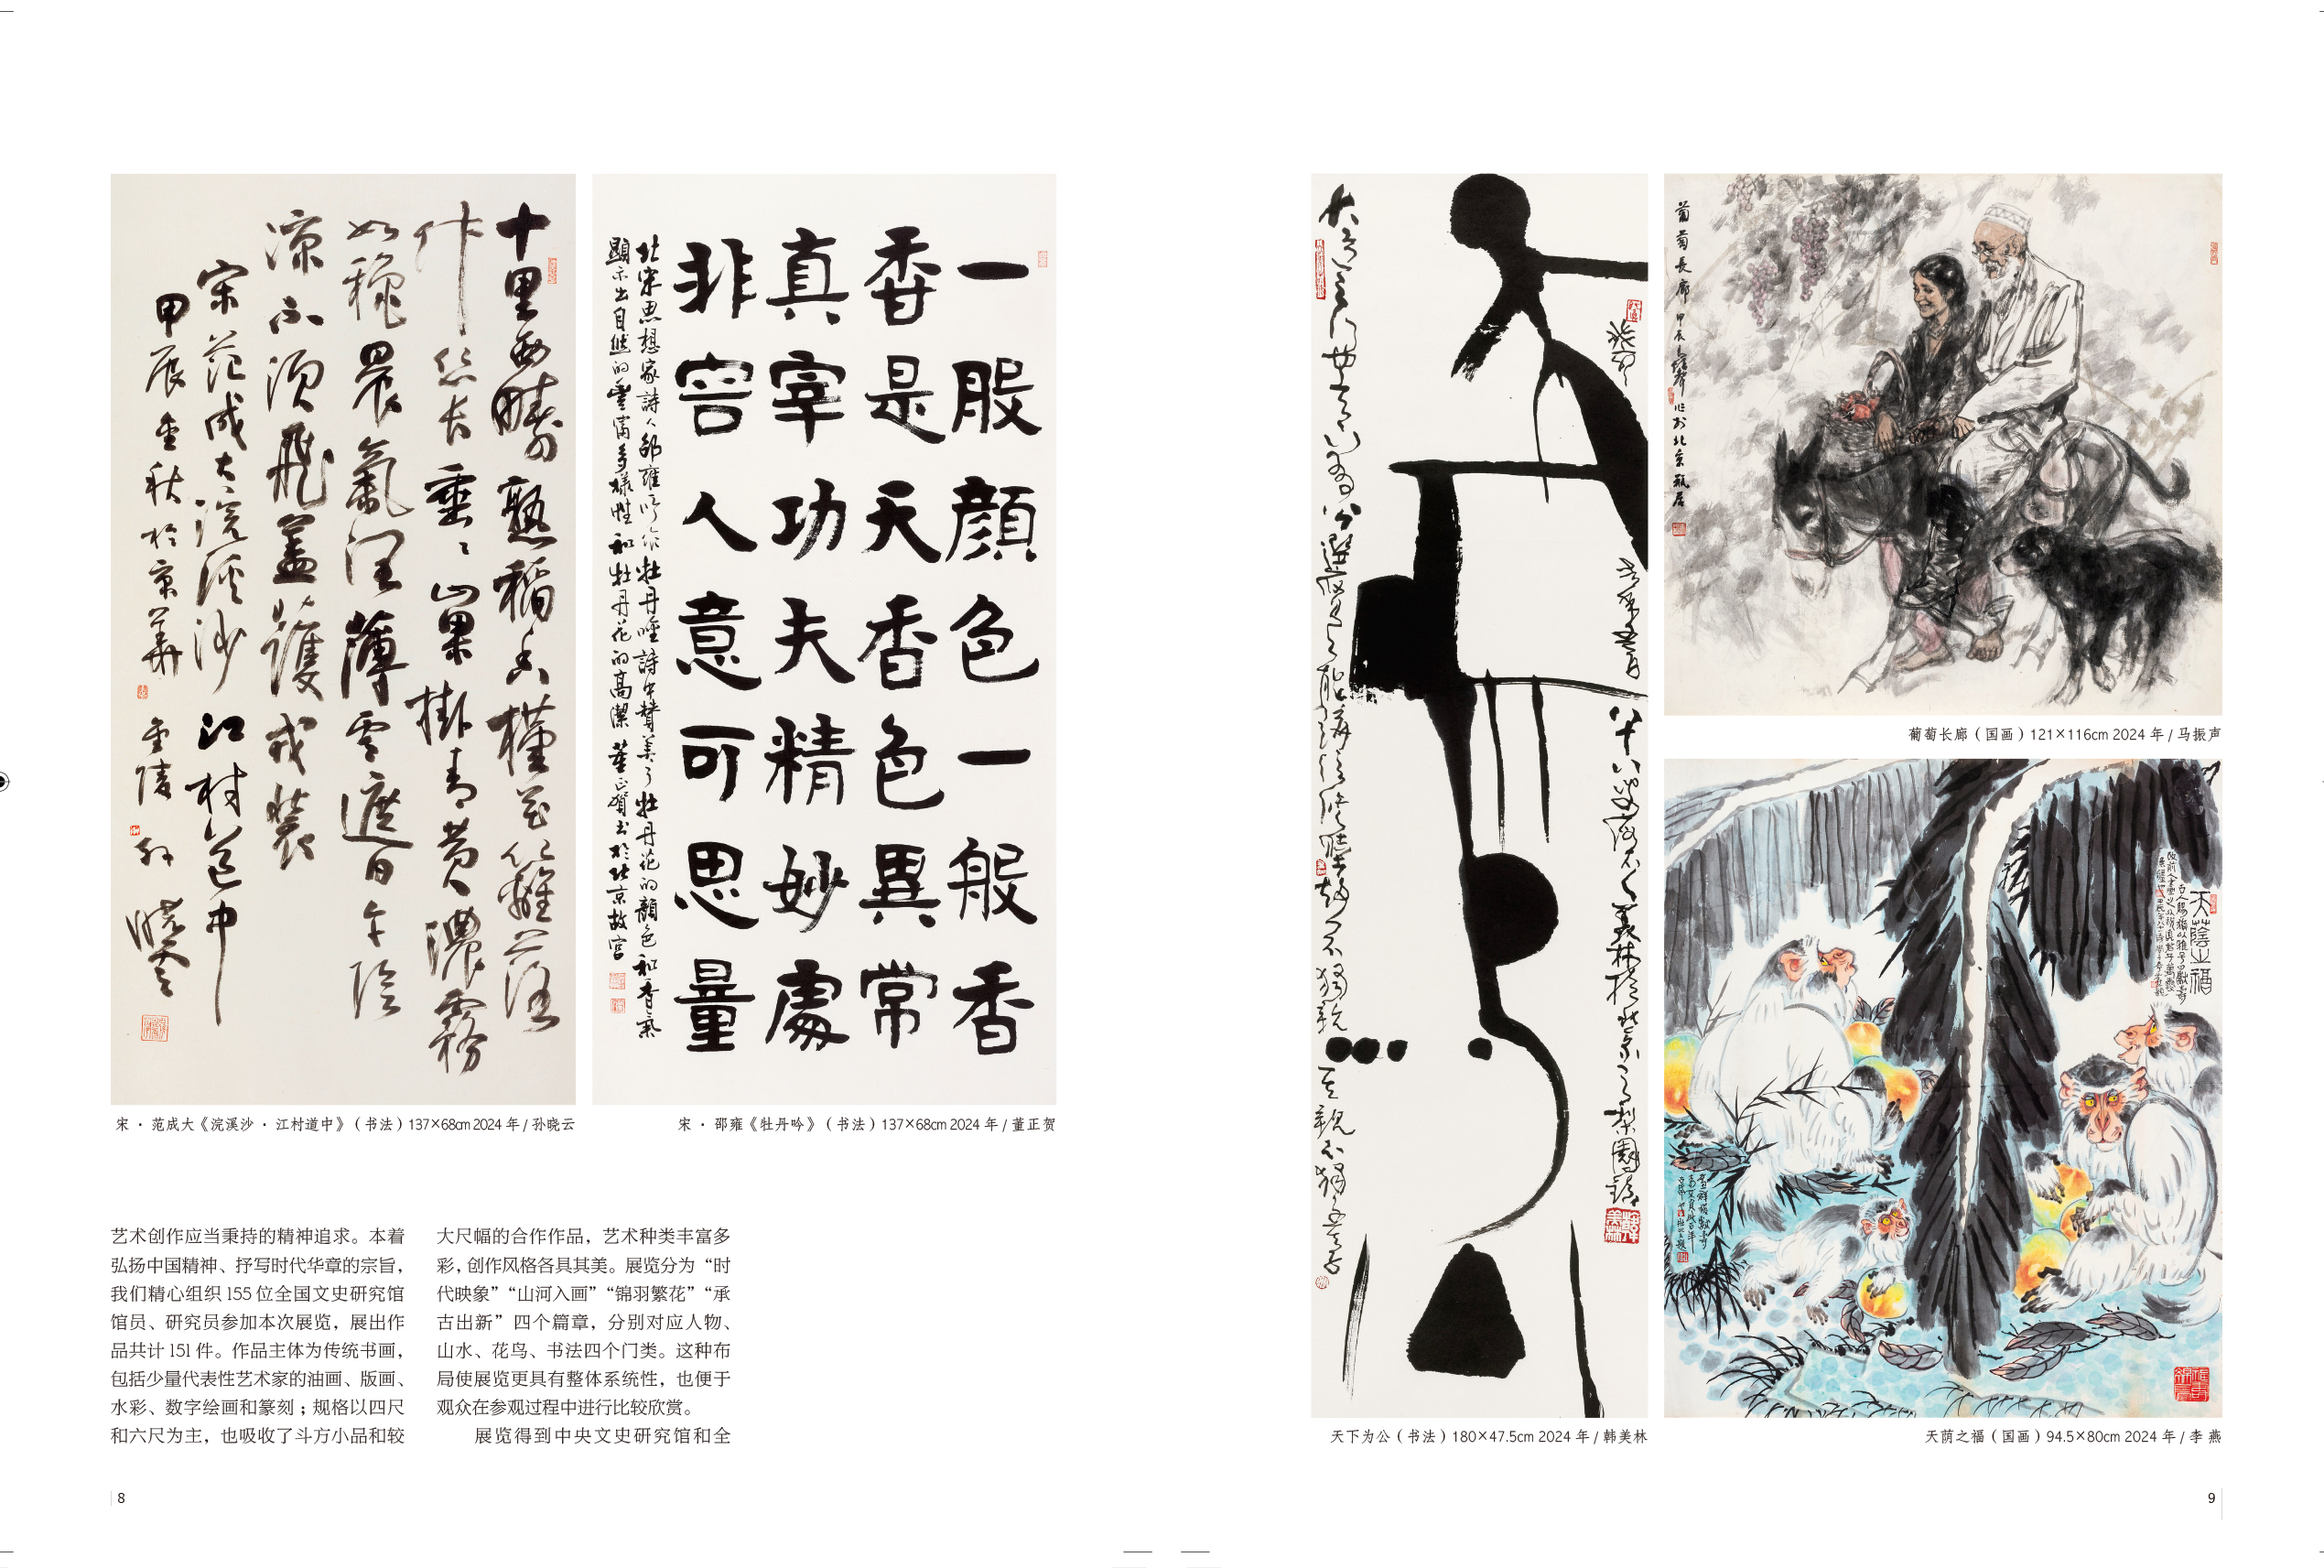 十里西疇熟稻香槿花籬落
竹丝长垂垂山果掛青黄濃霧
如穐晨氣润薄雲遮日午陰
凉不须飛蓋護戎裝
宋范成大浣溪沙 江村道中
甲辰金秋於京華 金陵 孙曉雲
一般颜色一般香
香是天香色異常
真宰功夫精妙處
非容人意可思量
北宋思想家詩人邵雍所作牡丹吟詩中贊美了牡丹花的顏色和香氣
顯示出自然的豐富多樣性和牡丹花的高潔 董正賀书於北京故宫
宋 · 范成大《浣溪沙 · 江村道中》（书法）137×68cm 2024 年 / 孙晓云
宋 · 邵雍《牡丹吟》（书法）137×68cm 2024 年 / 董正贺
艺术创作应当秉持的精神追求。本着
弘扬中国精神、抒写时代华章的宗旨，
我们精心组织 155 位全国文史研究馆
馆员、研究员参加本次展览，展出作
品共计 151 件。作品主体为传统书画，
包括少量代表性艺术家的油画、版画、
水彩、数字绘画和篆刻；规格以四尺
和六尺为主，也吸收了斗方小品和较
大尺幅的合作作品，艺术种类丰富多
彩，创作风格各具其美。展览分为“时
代映象”“山河入画”“锦羽繁花”“承
古出新”四个篇章，分别对应人物、
山水、花鸟、书法四个门类。这种布
局使展览更具有整体系统性，也便于
观众在参观过程中进行比较欣赏。
展览得到中央文史研究馆和全
8
大道之行也天下为公選贤与能講信修睦故人不獨親
其親不獨子其子
美林於北京
梨園
韩美林
天下为公（书法）180×47.5cm 2024 年 / 韩美林
葡萄長廊 甲辰 振声 作於北京
葡萄长廊（国画）121×116cm 2024 年 / 马振声
天蔭之福
天荫之福（国画）94.5×80cm 2024 年 / 李 燕
9